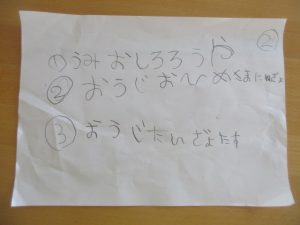 ②
めうみおしろろうや
②おうじおひめさまにめざよ
③おうじたいざよたす